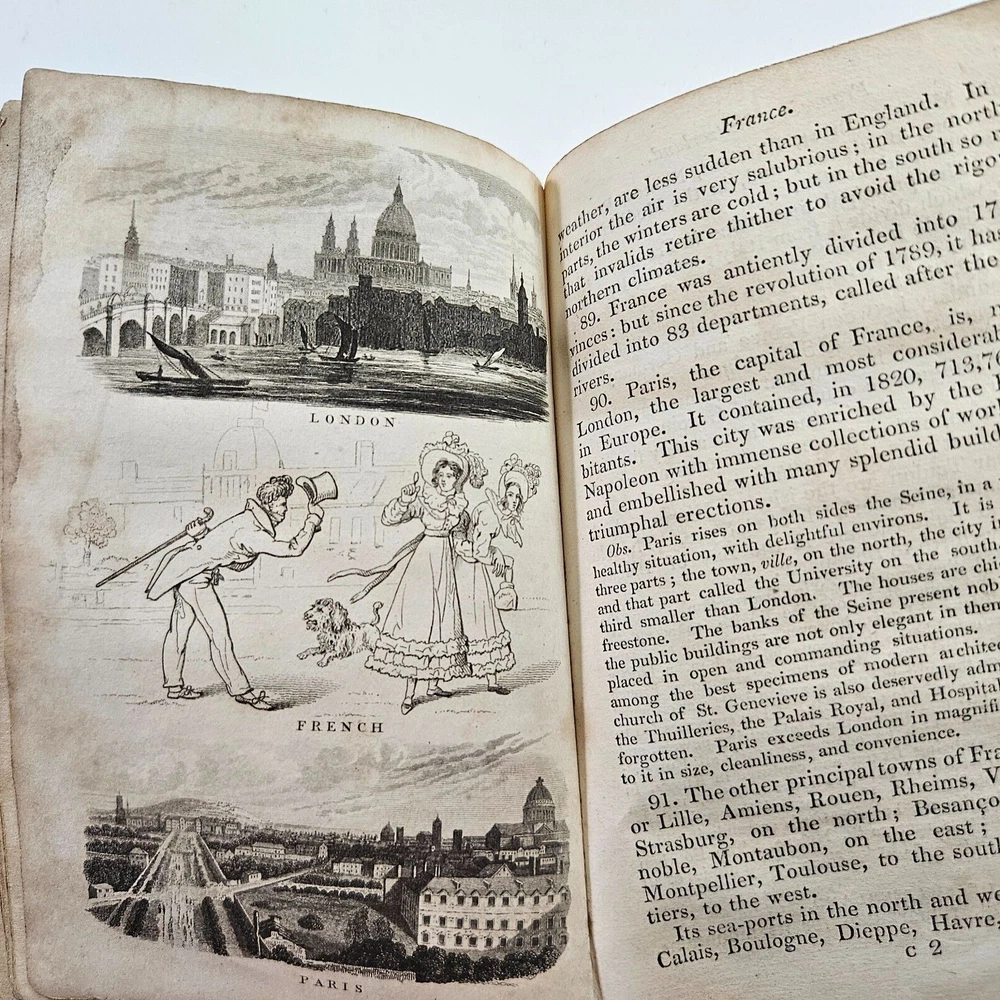 LONDON
FRENCH
PARIS
France.
weather, are less sudden than in England. In
interior the air is very salubrious; in the north
parts, the winters are cold; but in the south so
that invalids retire thither to avoid the rigo
northern climates.
89. France was antiently divided into 17
vinces: but since the revolution of 1789, it has
divided into 83 departments, called after the
rivers.
90. Paris, the capital of France, is,
London, the largest and most considerab
in Europe. It contained, in 1820, 713,7
bitants. This city was enriched by the
Napoleon with immense collections of wor
and embellished with many splendid build
triumphal erections.
Obs. Paris rises on both sides the Seine, in a
healthy situation, with delightful environs. It is
three parts; the town, ville, on the north, the city i
and that part called the University on the south.
third smaller than London. The houses are chi
freestone. The banks of the Seine present nob
the public buildings are not only elegant in them
placed in open and commanding situations.
among the best specimens of modern architec
church of St. Genevieve is also deservedly adm
the Thuilleries, the Palais Royal, and Hospital
forgotten. Paris exceeds London in magnifi
to it in size, cleanliness, and convenience.
91. The other principal towns of Fra
or Lille, Amiens, Rouen, Rheims, V
Strasburg, on the north; Besanço
noble, Montaubon, on the east;
Montpellier, Toulouse, to the south
tiers, to the west.
Its sea-ports in the north and we
Calais, Boulogne, Dieppe, Havre,
C 2